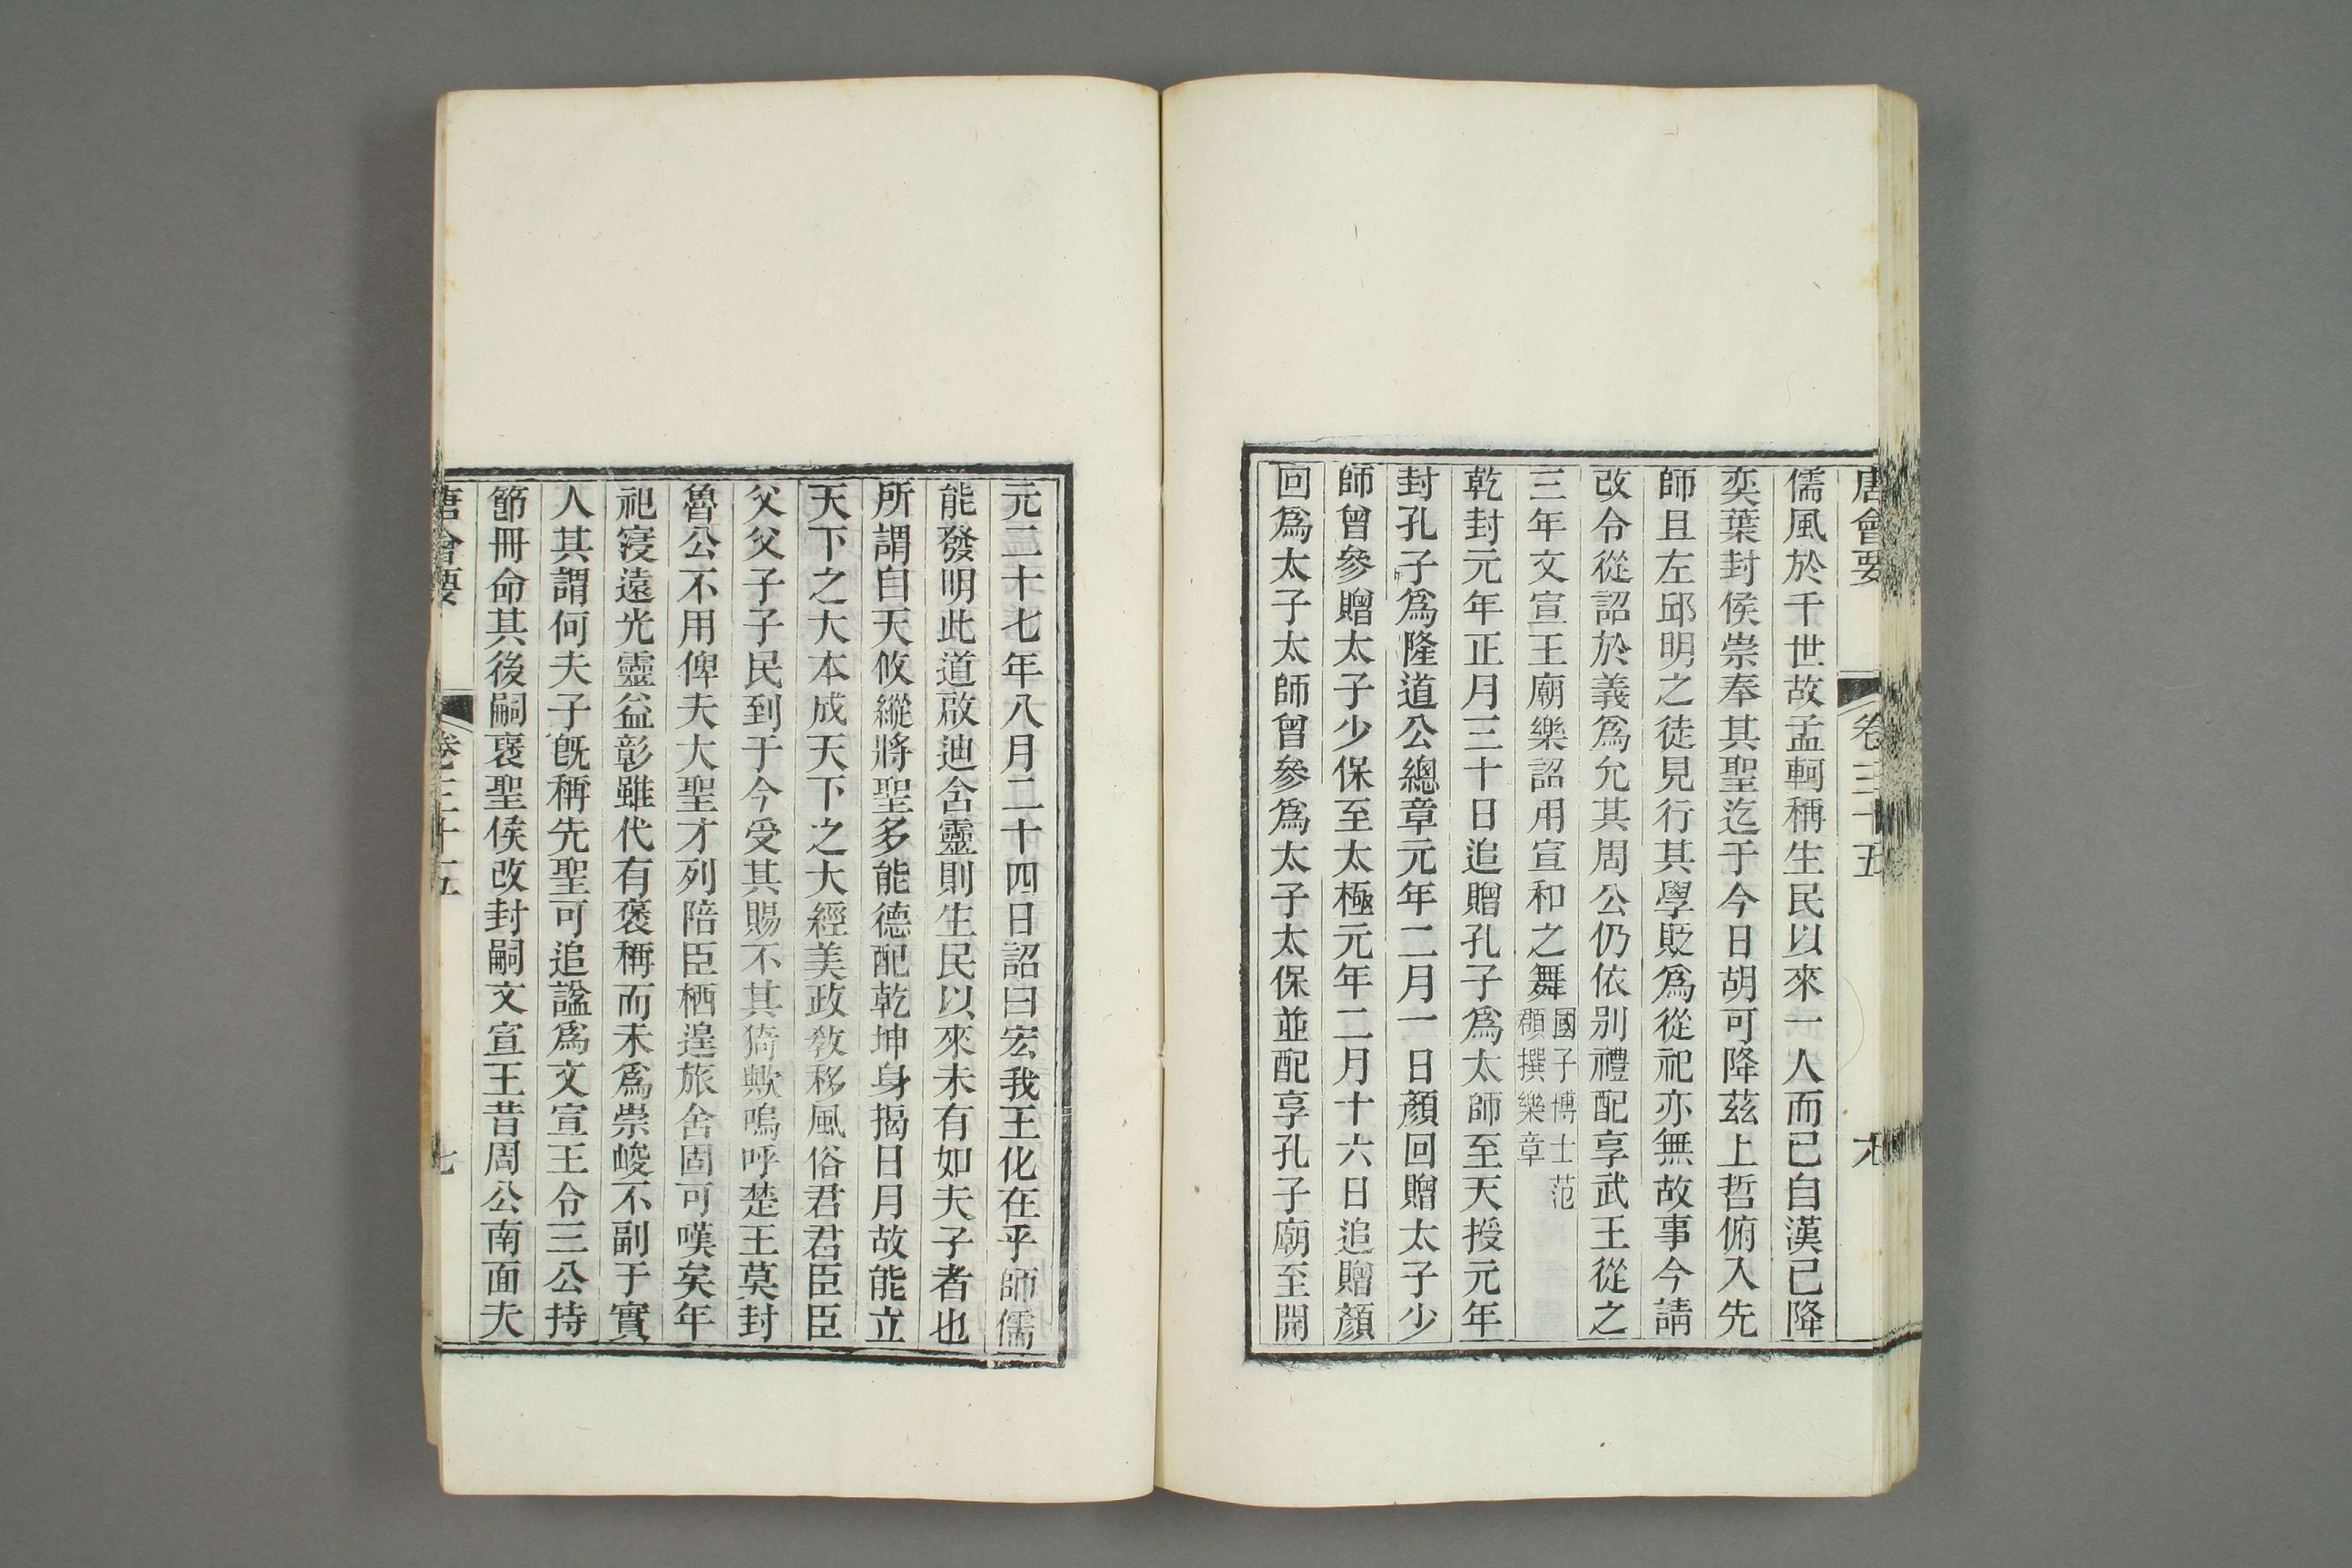 唐會要 卷三十五
儒風於千世故孟軻稱生民以來一人而已自漢已降
奕葉封侯崇奉其聖迄于今日胡可降茲上哲俯入先
師且左邱明之徒見行其學貶爲從祀亦無故事今請
改令從詔於義爲允其周公仍依别禮配享武王從之
三年文宣王廟樂詔用宣和之舞國子博士范
頵撰樂章
乾封元年正月三十日追贈孔子爲太師至天授元年
封孔子爲隆道公總章元年二月一日顏回贈太子少
師曾參贈太子少保至太極元年二月十六日追贈顏
回爲太子太師曾參爲太子太保並配享孔子廟至開
元二十七年八月二十四日詔曰宏我王化在乎師儒
能發明此道啟迪含靈則生民以來未有如夫子者也
所謂自天攸縱將聖多能德配乾坤身揭日月故能立
天下之大本成天下之大經美政敎移風俗君君臣臣
父父子子民到于今受其賜不其猗歟嗚呼楚王莫封
魯公不用俾夫大聖才列陪臣栖遑旅舍固可嘆矣年
祀寖遠光靈益彰雖代有褒稱而未爲崇峻不副于實
人其謂何夫子旣稱先聖可追諡爲文宣王令三公持
節冊命其後嗣褒聖侯改封嗣文宣王昔周公南面夫
唐會要 卷三十五 七